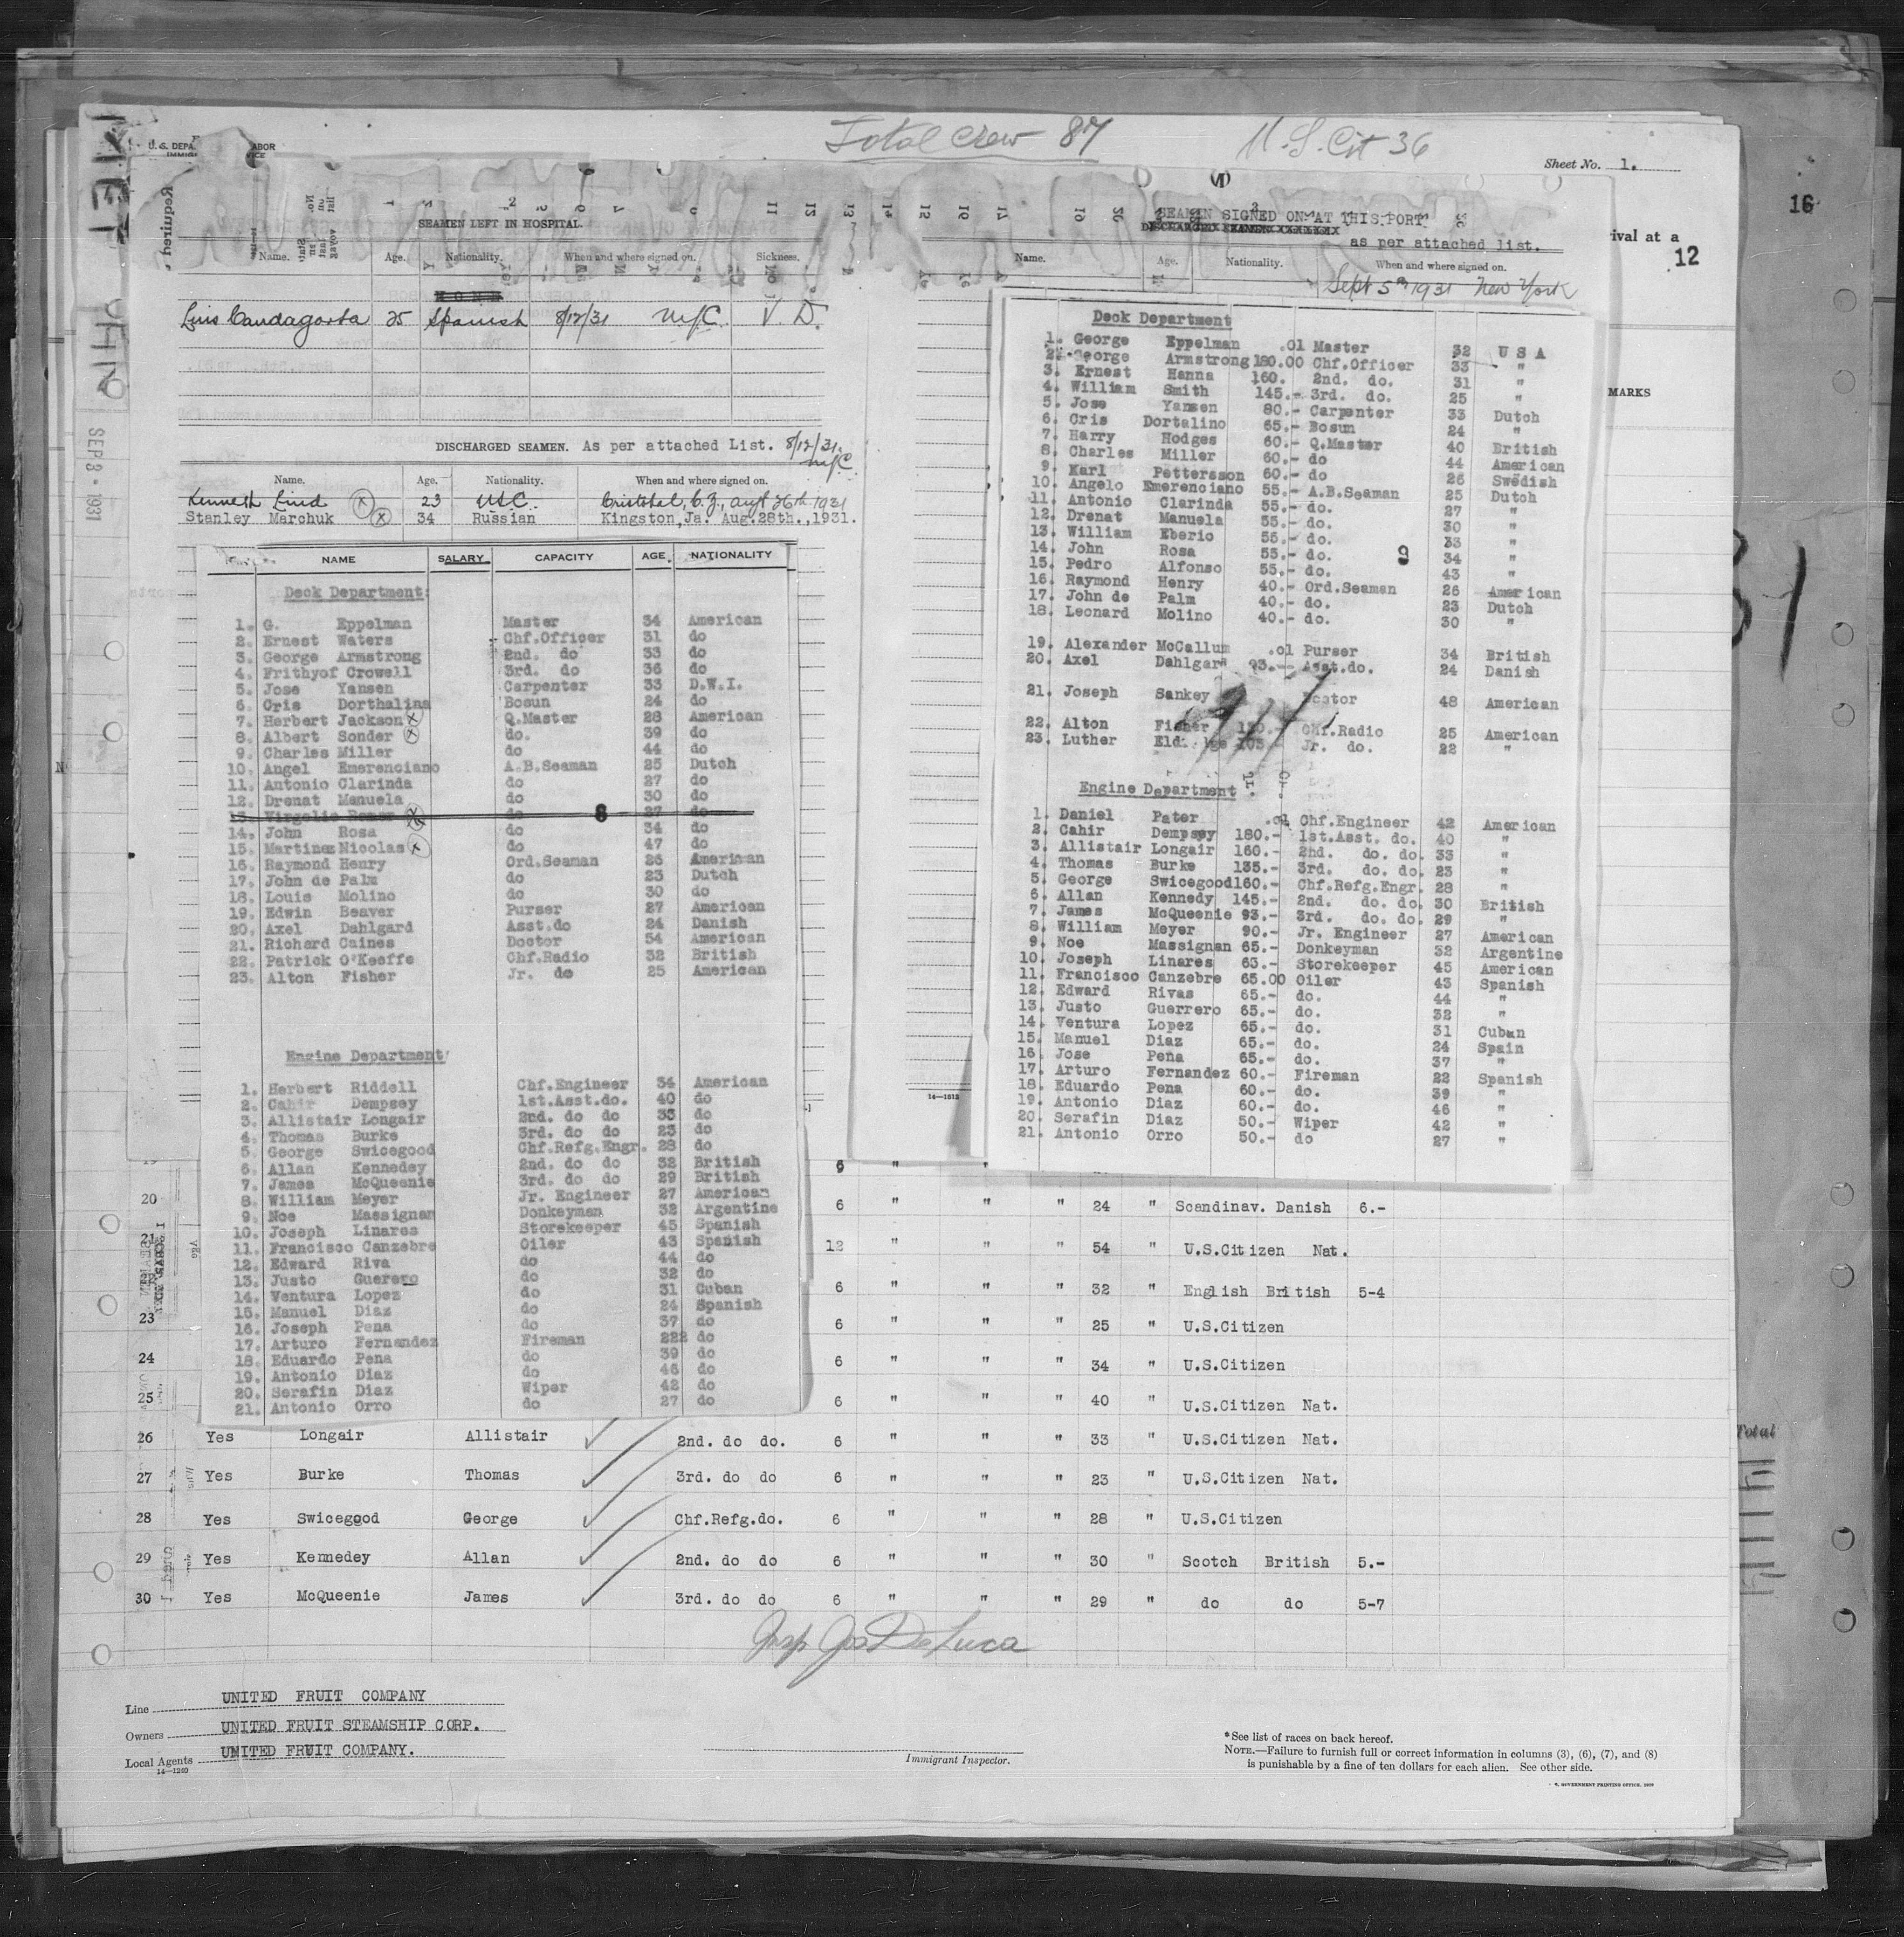 Total Crew 87
U.S. Cit 36
Sheet No. 1.
16
ival at a
12
MARKS
SEP 8 - 1931
SEAMEN LEFT IN HOSPITAL.
Name. Age. Nationality. When and where signed on. Sickness.
Luis Candagorta 25 Spanish 8/12/31 NYC. V.D.
DISCHARGED SEAMEN. As per attached List. 8/12/31. NYC
Name. Age. Nationality. When and where signed on.
Kenneth Lind 23 USC. Cristobal, C.Z., Augt 26th 1931
Stanley Marchuk 34 Russian Kingston,Ja. Aug.28th.,1931.
NAME SALARY CAPACITY AGE NATIONALITY
Deck Department:
1. G. Eppelman Master 34 American
2. Ernest Waters Chf.Officer 31 do
3. George Armstrong 2nd. do 33 do
4. Frithyof Crowell 3rd. do 36 do
5. Jose Yansen Carpenter 33 D.W.I.
6. Cris Dorthalina Bosun 24 do
7. Herbert Jackson Q.Master 28 American
8. Albert Sonder do. 39 do
9. Charles Miller do 44 do
10. Angel Emerenciano A.B.Seaman 25 Dutch
11. Antonio Clarinda do 27 do
12. Drenat Manuela do 30 do
13. Virgelio do 8 27 do
14. John Rosa do 34 do
15. Martinez Nicolas do 47 do
16. Raymond Henry Ord.Seaman 26 American
17. John de Palm do 23 Dutch
18. Louis Molino do 30 do
19. Edwin Beaver Purser 27 American
20. Axel Dahlgard Asst.do 24 Danish
21. Richard Caines Doctor 54 American
22. Patrick O'Keeffe Chf.Radio 32 British
23. Alton Fisher Jr. do 25 American
Engine Department
1. Herbert Riddell Chf.Engineer 34 American
2. Cahir Dempsey 1st.Asst.do. 40 do
3. Allistair Longair 2nd. do do 33 do
4. Thomas Burke 3rd. do do 23 do
5. George Swicegood Chf.Refg.Engr. 28 do
6. Allan Kennedey 2nd. do do 32 British
7. James McQueenie 3rd. do do 29 British
8. William Meyer Jr. Engineer 27 American
9. Noe Massignan Donkeyman 32 Argentine
10. Joseph Linares Storekeeper 45 Spanish
11. Francisco Canzebre Oiler 43 Spanish
12. Edward Riva do 44 do
13. Justo Guerero do 32 do
14. Ventura Lopez do 31 Cuban
15. Manuel Diaz do 24 Spanish
16. Joseph Pena do 37 do
17. Arturo Fernandez Fireman 222 do
18. Eduardo Pena do 39 do
19. Antonio Diaz do 46 do
20. Serafin Diaz Wiper 42 do
21. Antonio Orro do 27 do
SEAMEN SIGNED ON AT THIS PORT
as per attached list.
Name. Age. Nationality. When and where signed on.
Sept 5th 1931 New York
Deck Department
1. George Eppelman .01 Master 32 U S A
2. George Armstrong 180.00 Chf.Officer 33 "
3. Ernest Hanna 160. 2nd. do. 31 "
4. William Smith 145.- 3rd. do. 25 "
5. Jose Yansen 80.- Carpenter 33 Dutch
6. Cris Dortalino 65.- Bosun 24 "
7. Harry Hodges 60.- Q.Master 40 British
8. Charles Miller 60.- do 44 American
9. Karl Pettersson 60.- do 26 Swedish
10. Angelo Emerenciano 55.- A.B.Seaman 25 Dutch
11. Antonio Clarinda 55.- do. 27 "
12. Drenat Manuela 55.- do. 30 "
13. William Eberio 55.- do. 33 "
14. John Rosa 55.- do. 9 34 "
15. Pedro Alfonso 55.- do. 43 "
16. Raymond Henry 40.- Ord.Seaman 26 American
17. John de Palm 40.- do. 23 Dutch
18. Leonard Molino 40.- do. 30 "
19. Alexander McCallum .01 Purser 34 British
20. Axel Dahlgard 93.- Asst.do. 24 Danish
21. Joseph Sankey 48 American
22. Alton Fisher Chf.Radio 25 American
23. Luther 105.- Jr. do. 22 "
Engine Department
1. Daniel Pater .01 Chf.Engineer 42 American
2. Cahir Dempsey 180.- 1st.Asst. do. 40 "
3. Allistair Longair 160.- 2nd. do. do. 33 "
4. Thomas Burke 135.- 3rd. do. do. 23 "
5. George Swicegood 160.- Chf.Refg.Engr. 28 "
6. Allan Kennedy 145.- 2nd. do. do. 30 British
7. James McQueenie 93.- 3rd. do. do. 29 "
8. William Meyer 90.- Jr. Engineer 27 American
9. Noe Massignan 65.- Donkeyman 32 Argentine
10. Joseph Linares 63.- Storekeeper 45 American
11. Francisco Canzebre 65.00 Oiler 43 Spanish
12. Edward Rivas 65.- do. 44 "
13. Justo Guerrero 65.- do. 32 "
14. Ventura Lopez 65.- do. 31 Cuban
15. Manuel Diaz 65.- do. 24 Spain
16. Jose Pena 65.- do. 37 "
17. Arturo Fernandez 60.- Fireman 22 Spanish
18. Eduardo Pena 60.- do. 39 "
19. Antonio Diaz 60.- do. 46 "
20. Serafin Diaz 50.- Wiper 42 "
21. Antonio Orro 50.- do 27 "
20 6 " " " 24 " Scandinav. Danish 6.-
21 12 " " " 54 " U.S.Citizen Nat.
6 " " " 32 " English British 5-4
23 6 " " " 25 " U.S.Citizen
24 6 " " " 34 " U.S.Citizen
25 6 " " " 40 " U.S.Citizen Nat.
26 Yes Longair Allistair 2nd. do do. 6 " " " 33 " U.S.Citizen Nat.
27 Yes Burke Thomas 3rd. do do 6 " " " 23 " U.S.Citizen Nat.
28 Yes Swicegood George Chf.Refg.do. 6 " " " 28 " U.S.Citizen
29 Yes Kennedey Allan 2nd. do do 6 " " " 30 " Scotch British 5.-
30 Yes McQueenie James 3rd. do do 6 " " " 29 " do do 5-7
Total
Insp Jos DeLuca
Line UNITED FRUIT COMPANY
Owners UNITED FRUIT STEAMSHIP CORP.
Local Agents UNITED FRUIT COMPANY.
14—1240
Immigrant Inspector.
*See list of races on back hereof.
NOTE.—Failure to furnish full or correct information in columns (3), (6), (7), and (8)
is punishable by a fine of ten dollars for each alien. See other side.